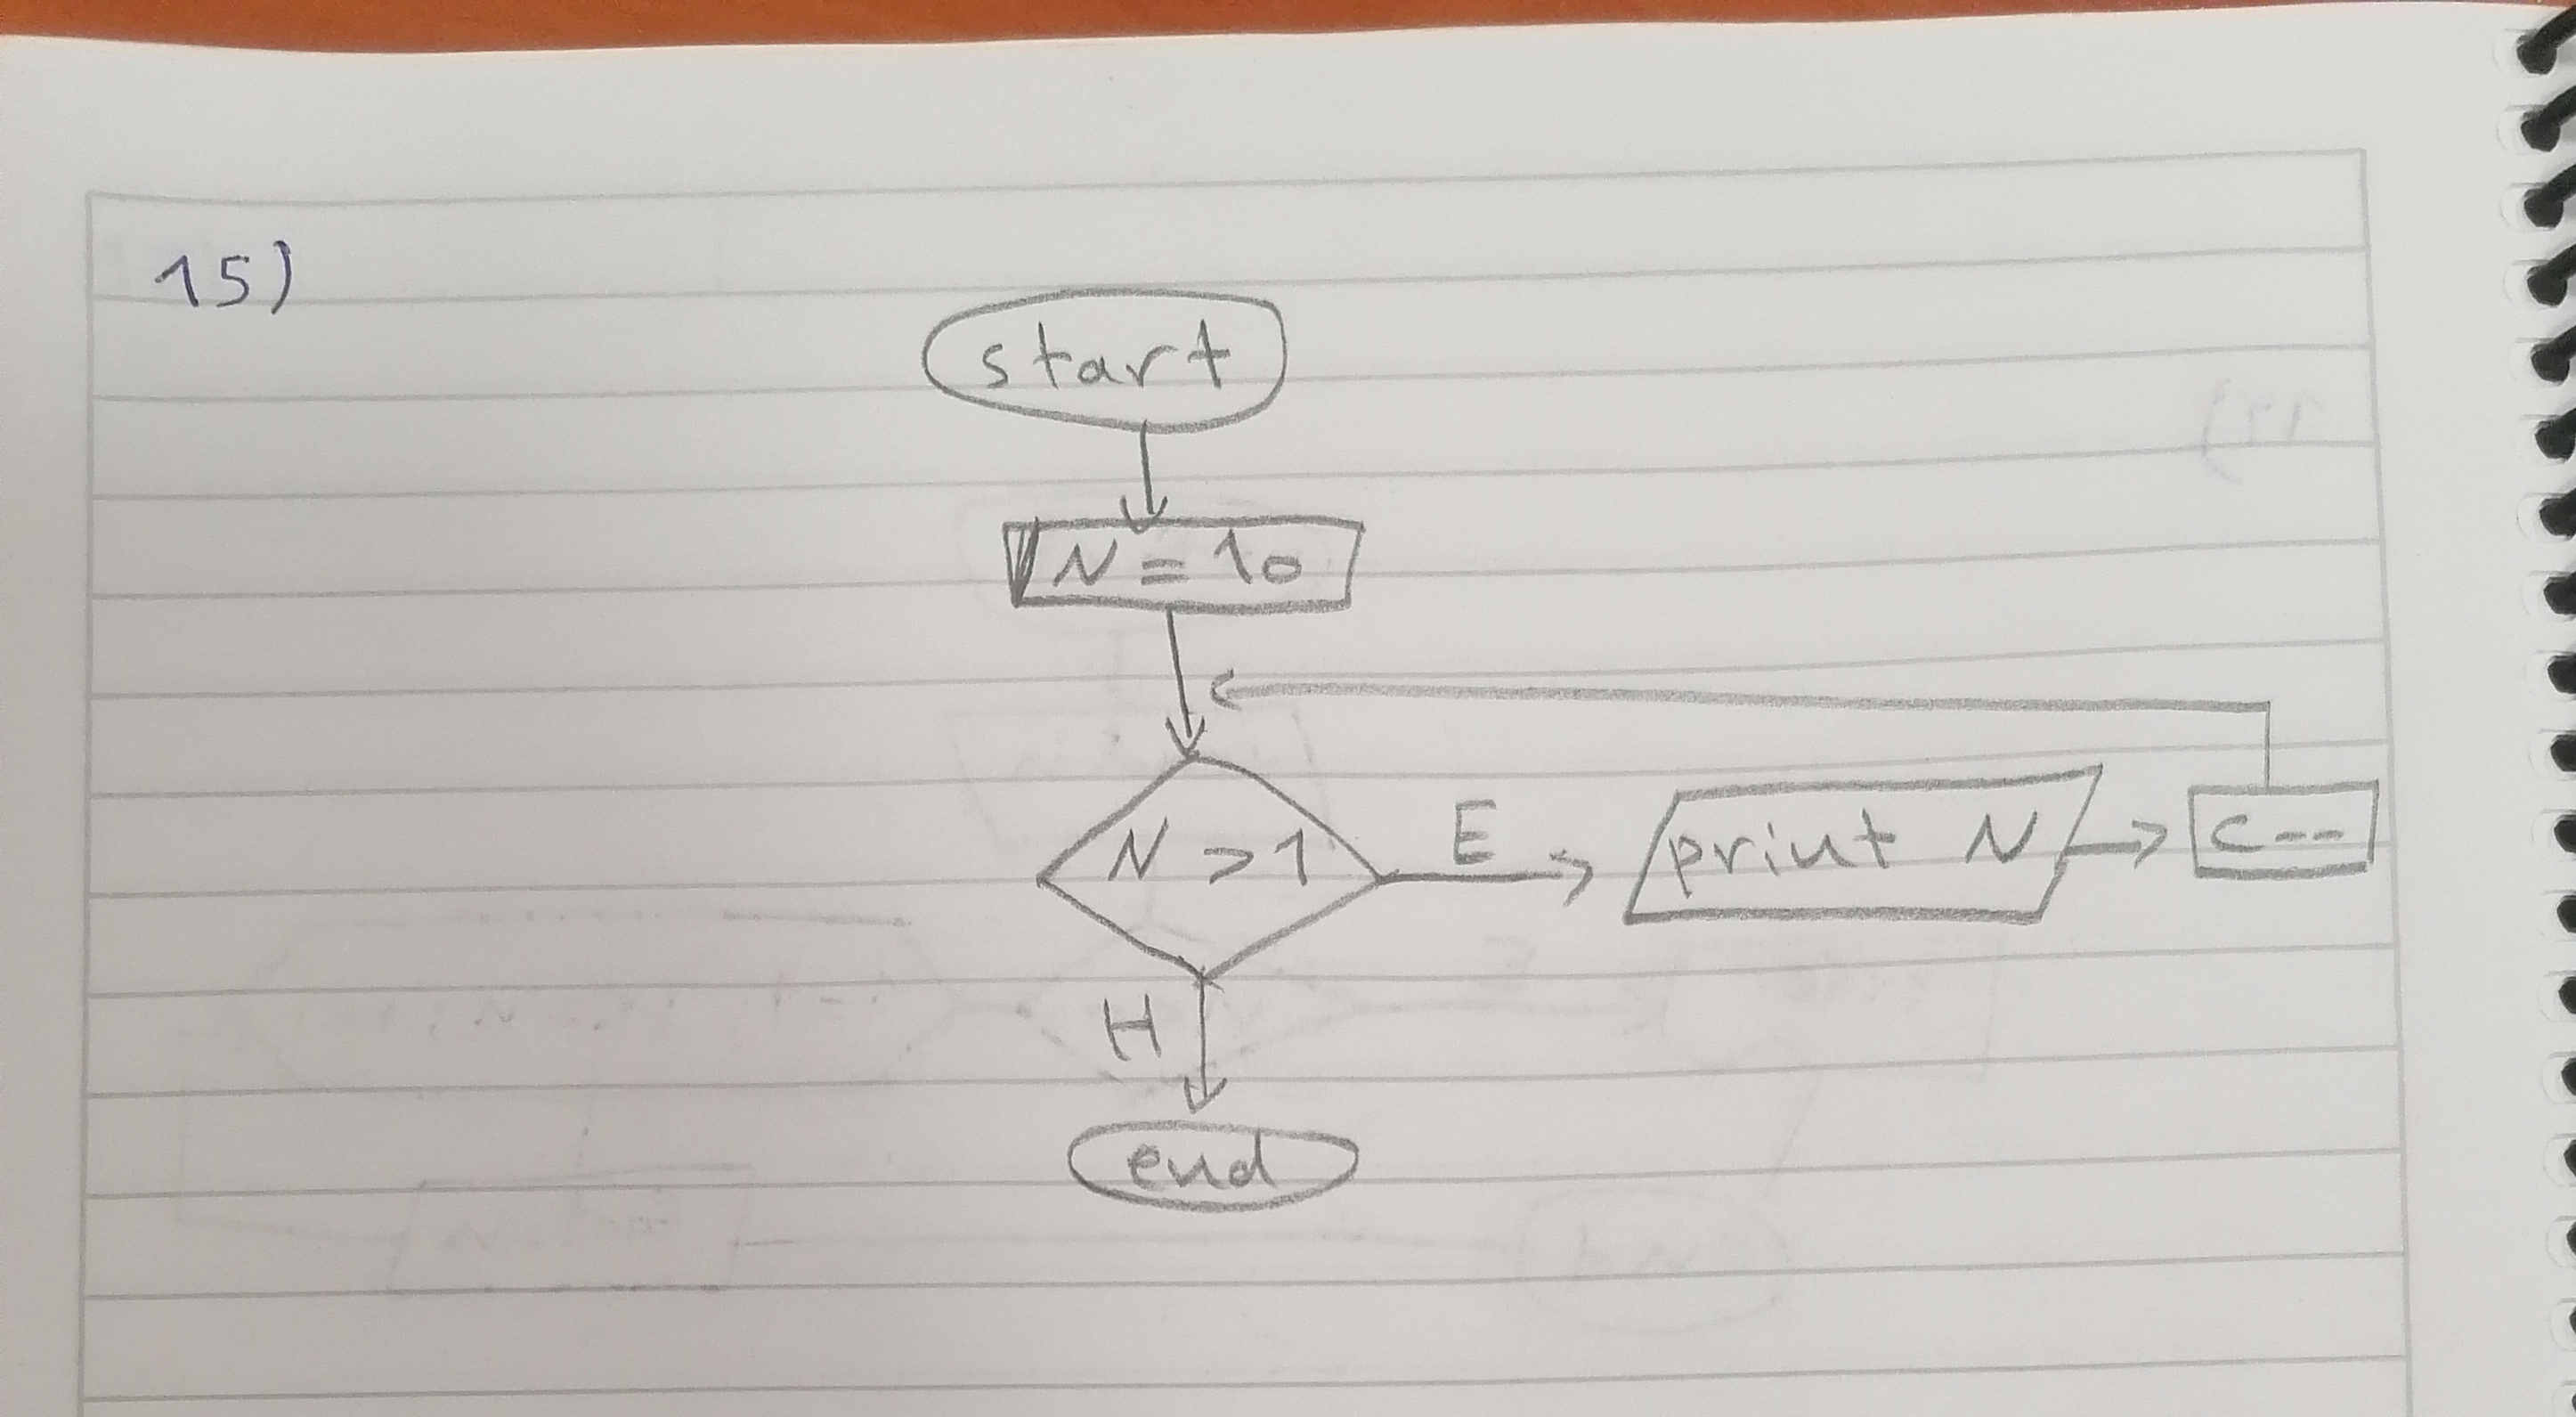 15)
start
N = 10
N > 1
E
print N
c--
H
end